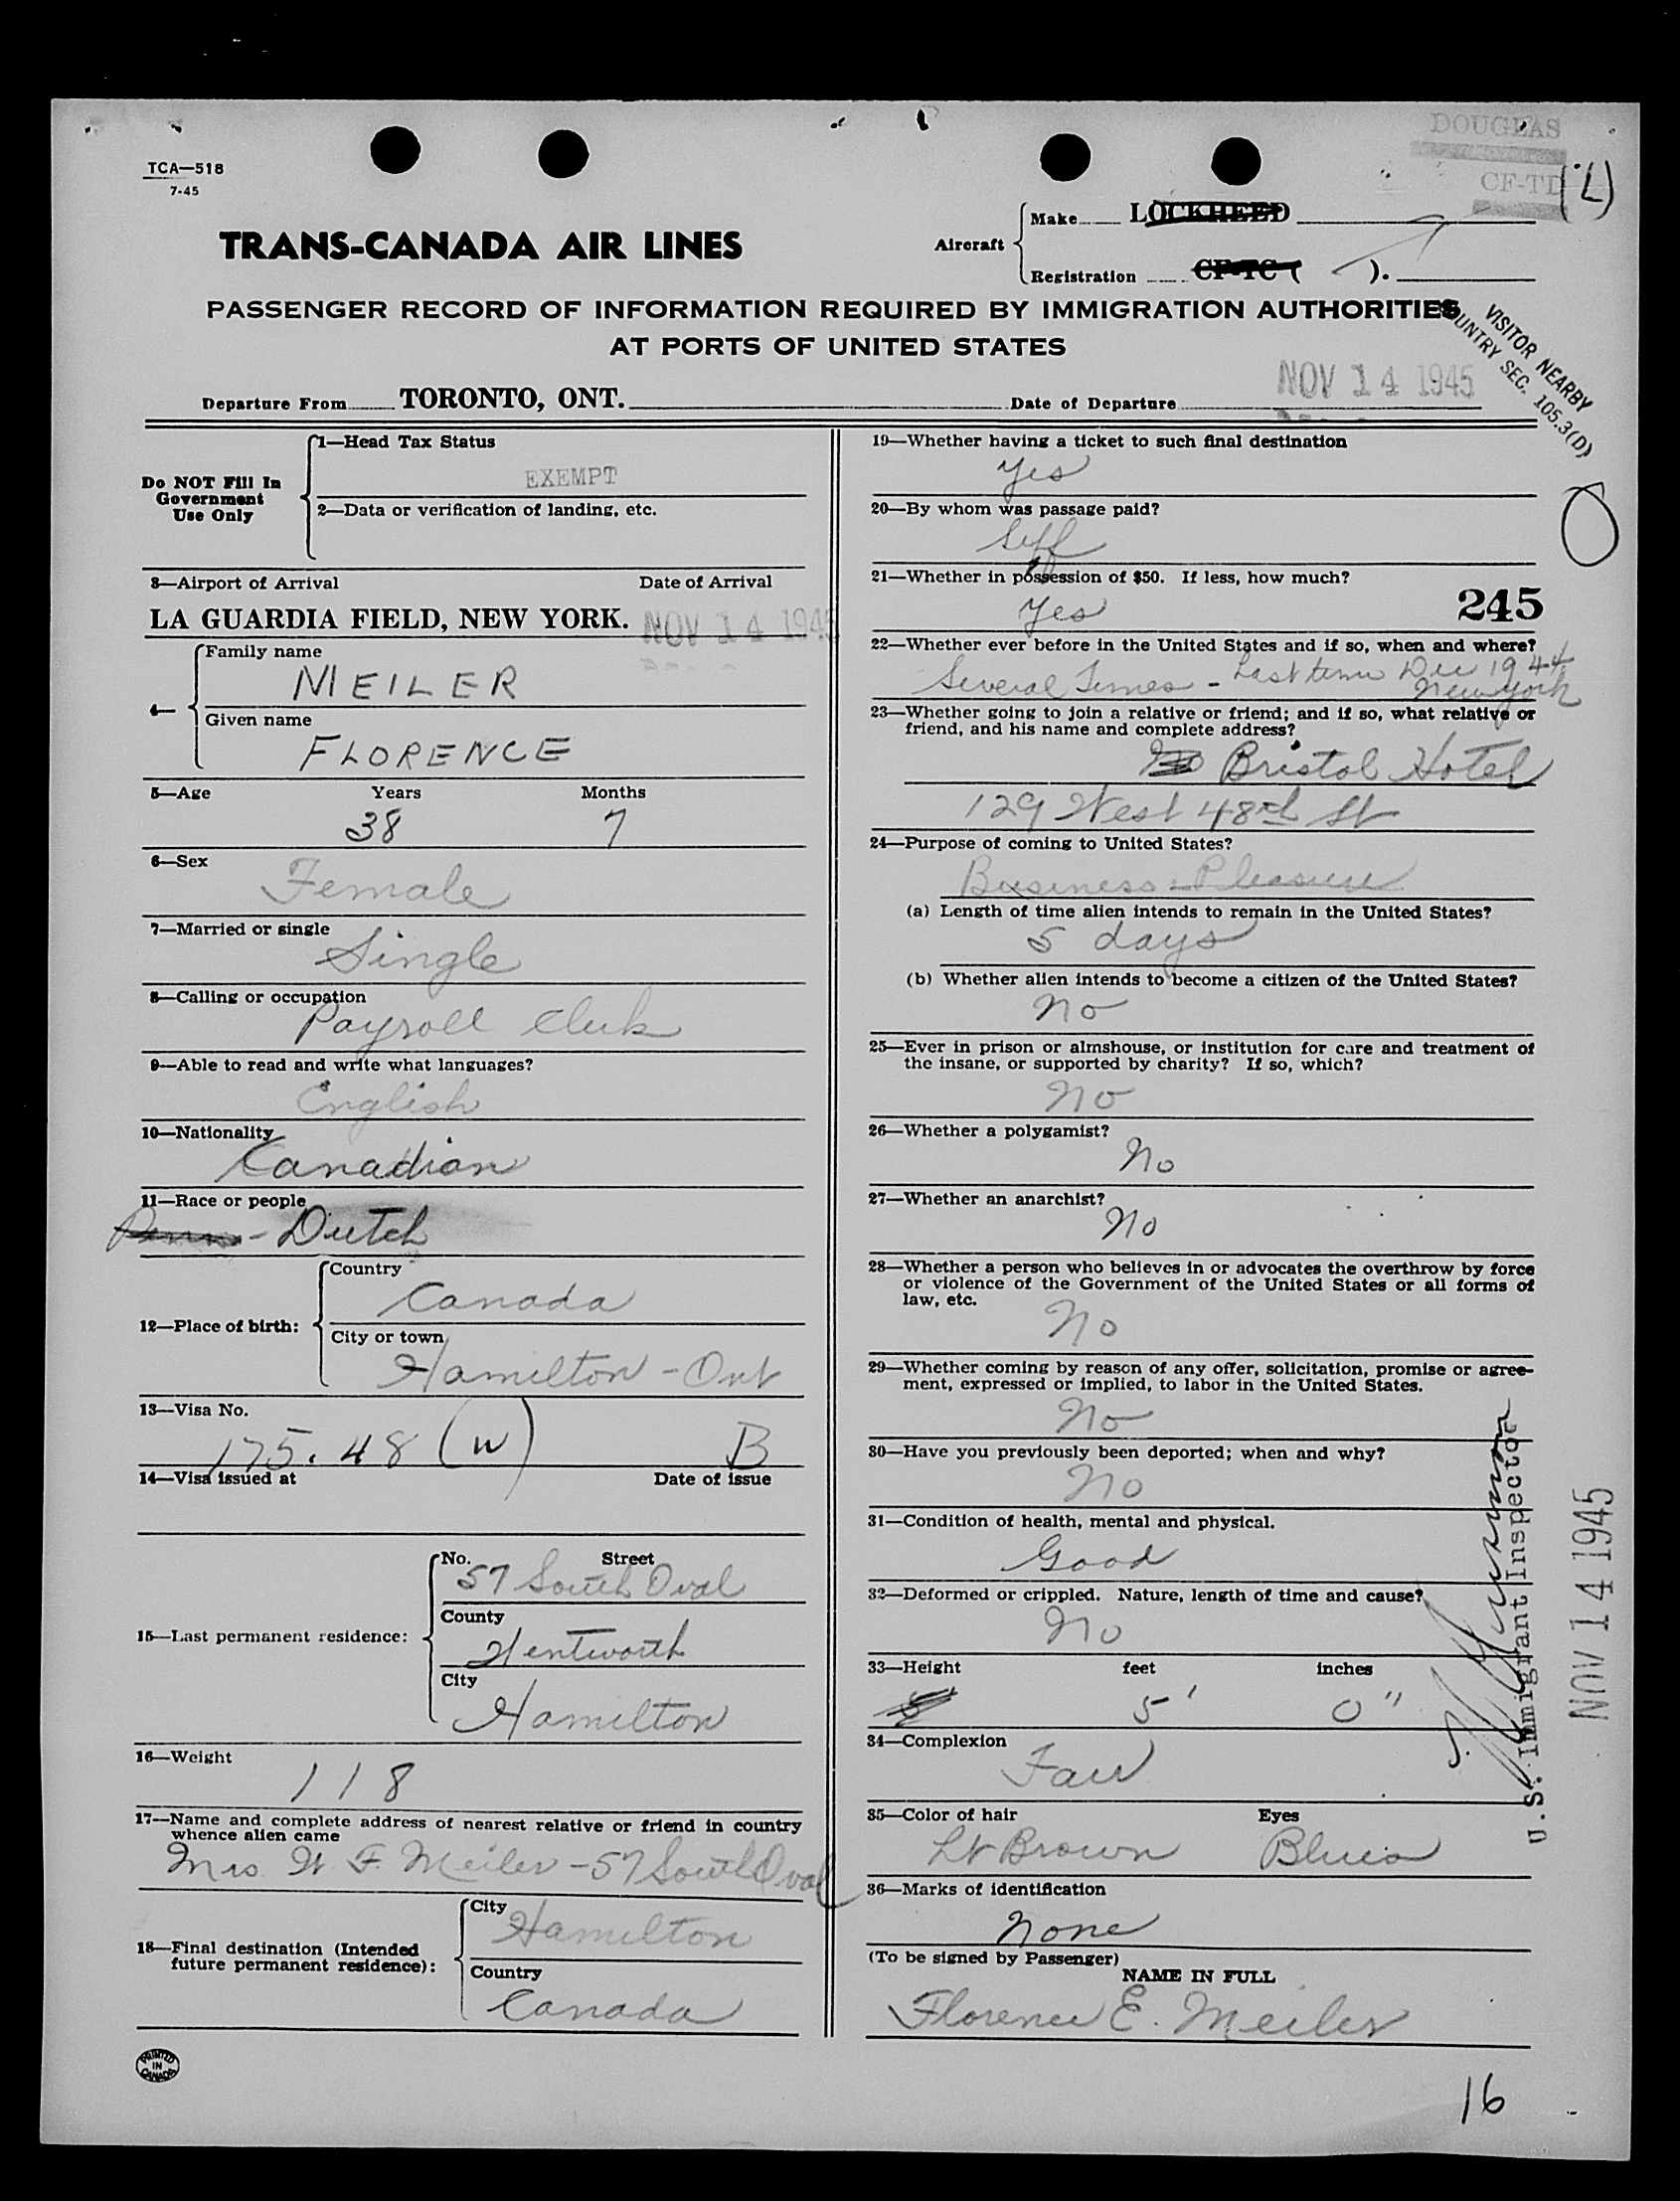 TCA—518
7-45
DOUGLAS
CF-TD (L)
TRANS-CANADA AIR LINES
Aircraft
Make LOCKHEED
Registration CF-TC ( ).
PASSENGER RECORD OF INFORMATION REQUIRED BY IMMIGRATION AUTHORITIES
AT PORTS OF UNITED STATES
VISITOR NEARBY
COUNTRY SEC. 105.3(D)
Departure From TORONTO, ONT. Date of Departure NOV 14 1945
Do NOT Fill In
Government
Use Only
1—Head Tax Status
EXEMPT
2—Data or verification of landing, etc.
3—Airport of Arrival Date of Arrival
LA GUARDIA FIELD, NEW YORK. NOV 14 1945
4—
Family name
MEILER
Given name
FLORENCE
5—Age Years Months
38 7
6—Sex
Female
7—Married or single
Single
8—Calling or occupation
Payroll Clerk
9—Able to read and write what languages?
English
10—Nationality
Canadian
11—Race or people
Penn - Dutch
12—Place of birth:
Country
Canada
City or town
Hamilton - Ont
13—Visa No.
175.48 (W) B
14—Visa issued at Date of issue
15—Last permanent residence:
No. Street
57 South Oval
County
Wentworth
City
Hamilton
16—Weight
118
17—Name and complete address of nearest relative or friend in country
whence alien came
Mrs. W. F. Meiler - 57 South Oval
18—Final destination (Intended
future permanent residence):
City
Hamilton
Country
Canada
PRINTED
IN
CANADA
19—Whether having a ticket to such final destination
Yes
20—By whom was passage paid?
Self
21—Whether in possession of $50. If less, how much?
Yes
245
22—Whether ever before in the United States and if so, when and where?
Several Times - Last time Dec 1944
New York
23—Whether going to join a relative or friend; and if so, what relative or
friend, and his name and complete address?
No Bristol Hotel
129 West 48th St
24—Purpose of coming to United States?
Business - Pleasure
(a) Length of time alien intends to remain in the United States?
5 days
(b) Whether alien intends to become a citizen of the United States?
No
25—Ever in prison or almshouse, or institution for care and treatment of
the insane, or supported by charity? If so, which?
No
26—Whether a polygamist?
No
27—Whether an anarchist?
No
28—Whether a person who believes in or advocates the overthrow by force
or violence of the Government of the United States or all forms of
law, etc.
No
29—Whether coming by reason of any offer, solicitation, promise or agree-
ment, expressed or implied, to labor in the United States.
No
30—Have you previously been deported; when and why?
No
31—Condition of health, mental and physical.
Good
32—Deformed or crippled. Nature, length of time and cause?
No
33—Height feet inches
5' 0"
34—Complexion
Fair
35—Color of hair Eyes
Lt Brown Blue
36—Marks of identification
None
(To be signed by Passenger)
NAME IN FULL
Florence E. Meiler
U.S. Immigrant Inspector
NOV 14 1945
16